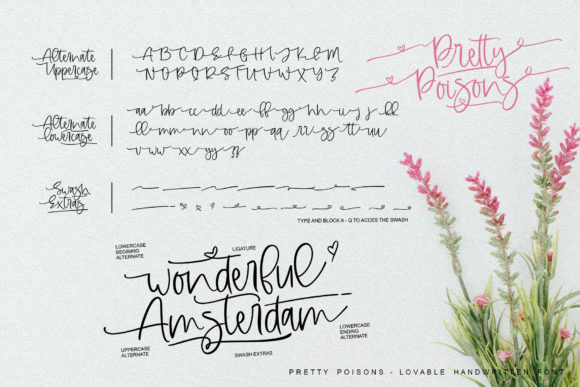 Alternate
Uppercase
ABCDEFGHIJKLM
NOPQRSTUVWXYZ
Pretty
Poisons
Alternate
lowercase
aa bb cc dd ee ff gg hh ii jj kk
ll mm nn oo pp qq rr ss tt uu
vv ww xx yy zz
Swash
Extras
TYPE AND BLOCK A - Q TO ACCES THE SWASH
LOWERCASE
BEGINING
ALTERNATE
LIGATURE
wonderful
Amsterdam
UPPERCASE
ALTERNATE
SWASH EXTRAS
LOWERCASE
ENDING
ALTERNATE
PRETTY POISONS - LOVABLE HANDWRITTEN FONT